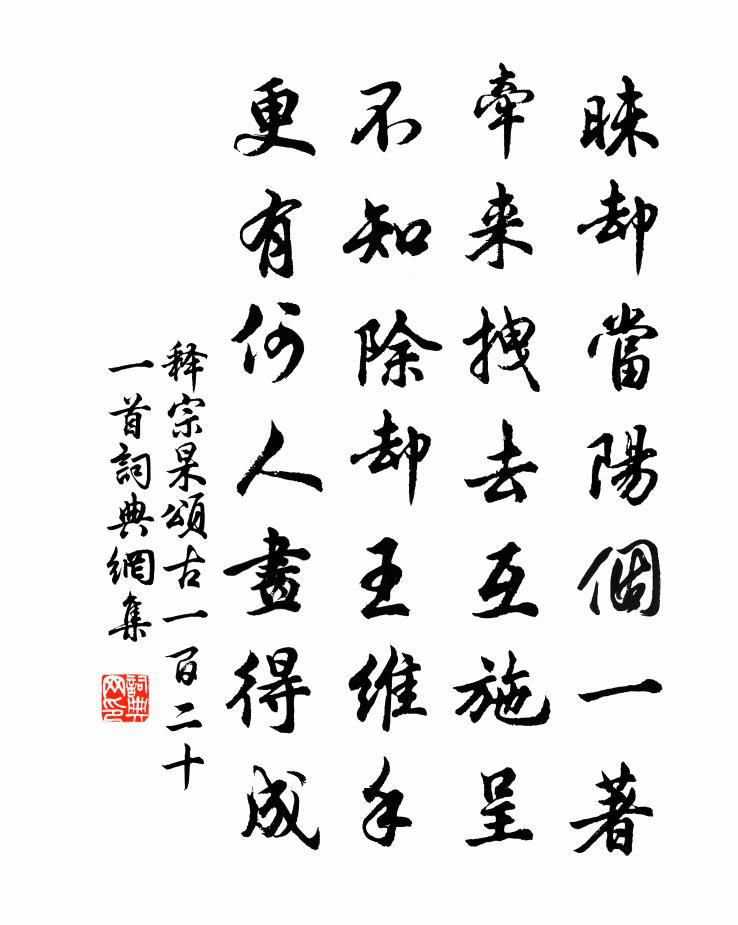 昧却當陽個一著
牽来拽去互施呈
不知除却王維手
更有何人畫得成
释宗杲頌古一百二十
一首詞典網集
詞典
网印